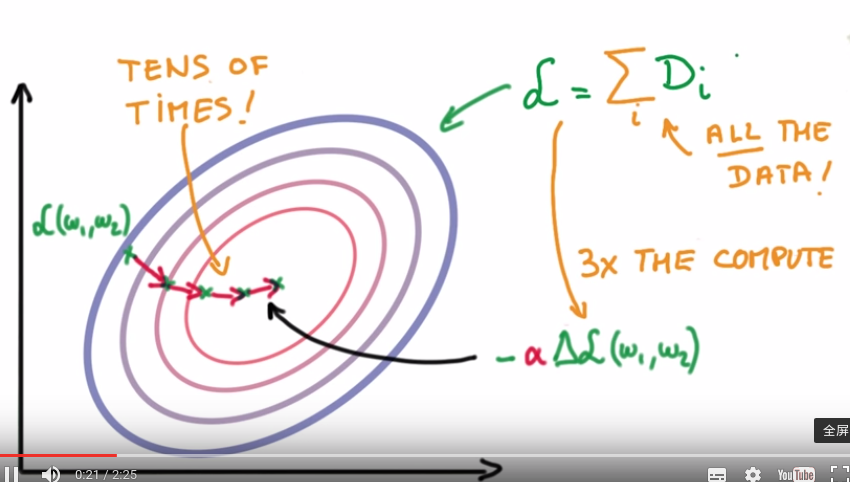 TENS OF
TIMES!
ℒ = Σ Dᵢ
i
ALL THE
DATA!
ℒ(ω₁,ω₂)
3x THE COMPUTE
- α Δℒ(ω₁,ω₂)
全屏
0:21 / 2:25
YouTube